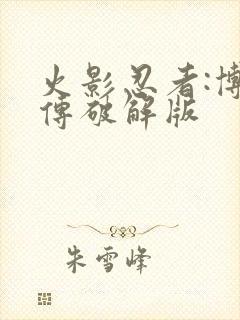 火影忍者:博
傳破解版
朱雪峰